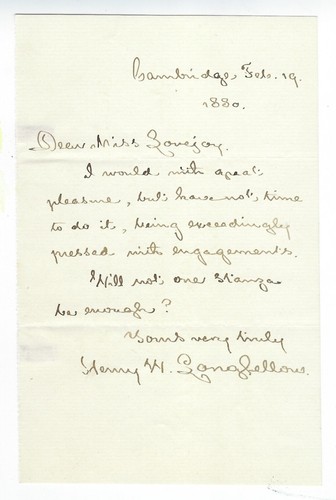 Cambridge Feb. 19.
1880.
Dear Miss Lovejoy,
I would with great
pleasure, but have not time
to do it, being exceedingly
pressed with engagements.
Will not one stanza
be enough?
Yours very truly
Henry W. Longfellow.